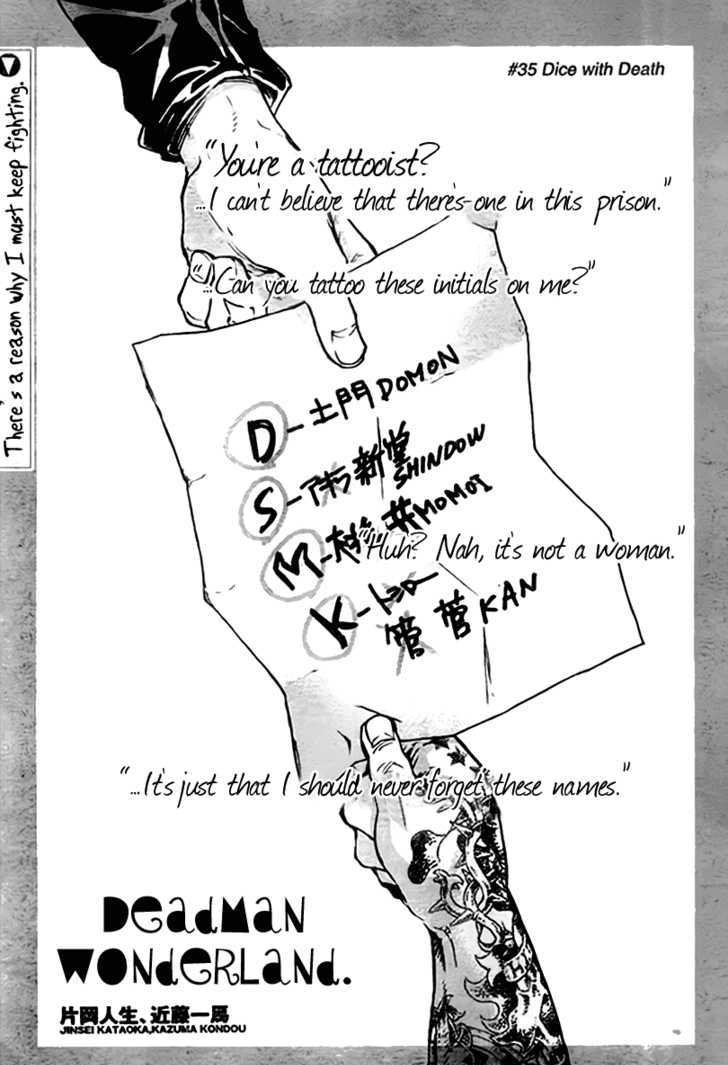 #35 Dice with Death
There's a reason why I must keep fighting.
"You're a tattooist?
...I can't believe that there's one in this prison."
"...Can you tattoo these initials on me?"
D-土門 DOMON
S-新堂 SHINDOW
M-井 MOMOI
"Huh? Nah, it's not a woman."
K-トシロー
管 菅 KAN
"...It's just that I should never forget these names."
DEADMAN
WONDERLAND.
片岡人生、近藤一馬
JINSEI KATAOKA,KAZUMA KONDOU